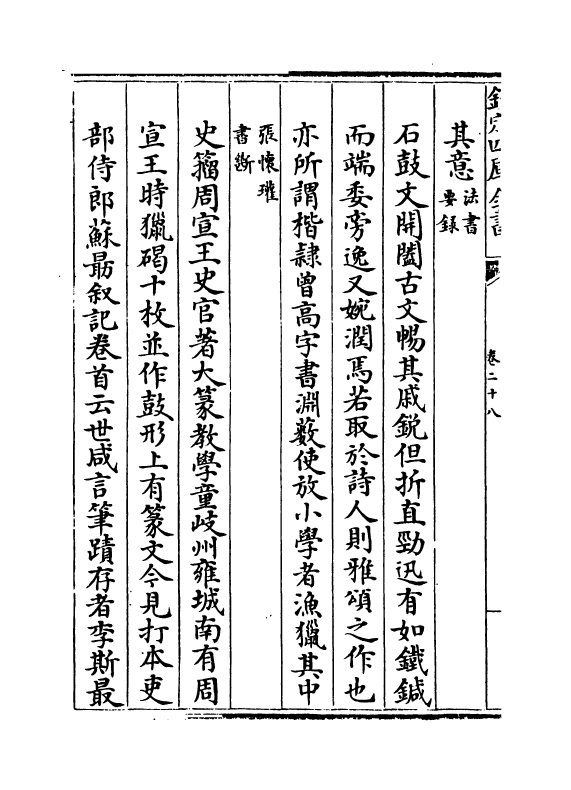 欽定四庫全書
卷二十八
其意法書要録
石鼓文開闔古文暢其戚鋭但折直勁迅有如鐵鍼
而端委旁逸又婉潤焉若取於詩人則雅頌之作也
亦所謂楷隷曾高字書淵藪使放小學者漁獵其中
張懷瓘書斷
史籀周宣王史官著大篆教學童岐州雍城南有周
宣王時獵碣十枚並作鼓形上有篆文今見打本吏
部侍郎蘇勗叙記卷首云世咸言筆蹟存者李斯最